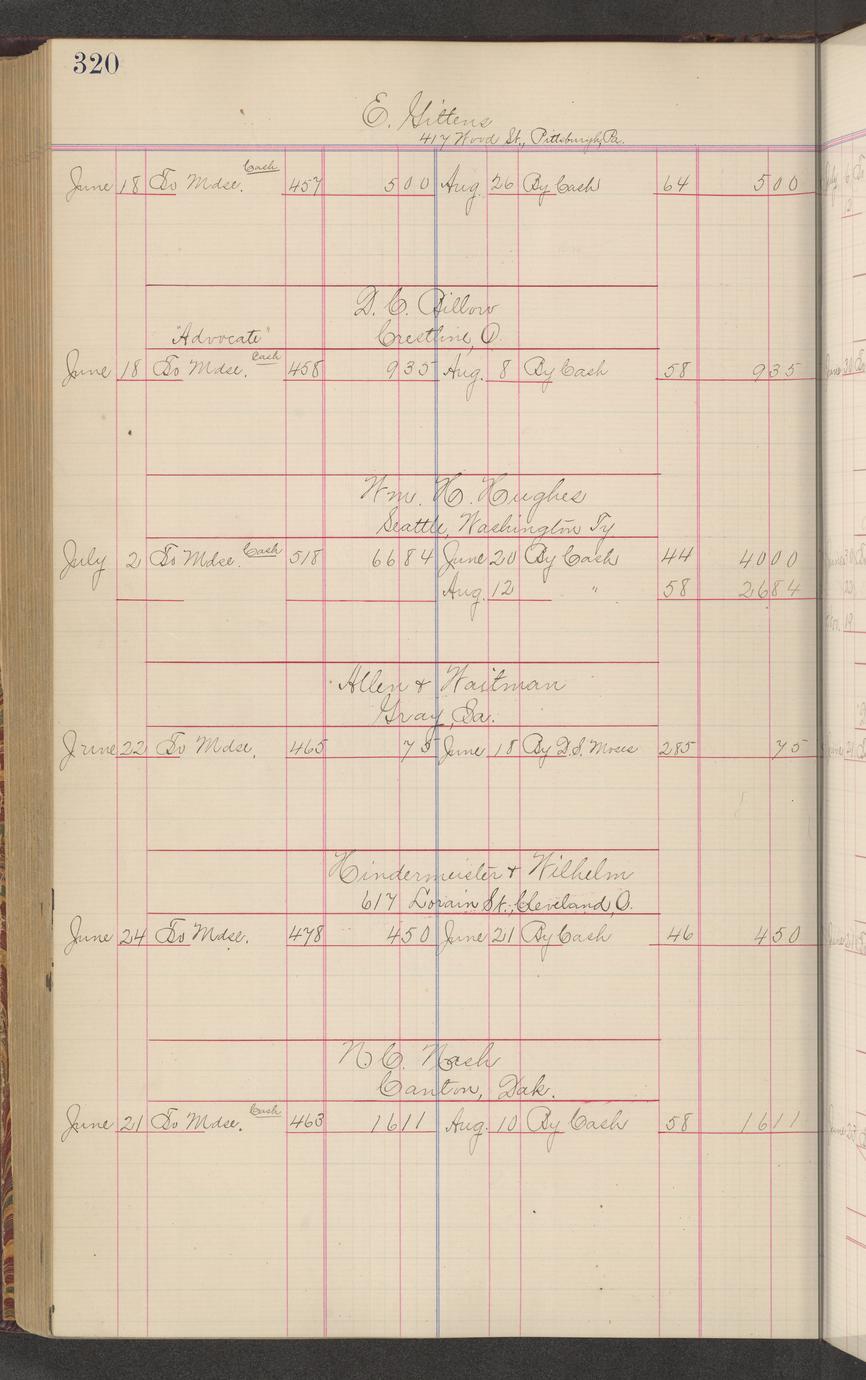 320
E. Gittens
417 Wood St., Pittsburgh, Pa.
June 18 To Mdse. Cash 457 500 Aug. 26 By Cash 64 500
D. C. Billow
"Advocate" Crestline, O.
June 18 To Mdse. Cash 458 935 Aug. 8 By Cash 58 935
Wm. H. Hughes
Seattle, Washington Ty
July 2 To Mdse. Cash 518 6684 June 20 By Cash 44 4000
Aug. 12 " 58 2684
Allen & Waitman
Gray, Ga.
June 22 To Mdse. 465 75 June 18 By D. S. Moses 285 75
Hindermeister & Wilhelm
617 Lorain St., Cleveland, O.
June 24 To Mdse. 478 450 June 21 By Cash 46 450
N. C. Nash
Canton, Dak.
June 21 To Mdse. Cash 463 1611 Aug. 10 By Cash 58 1611